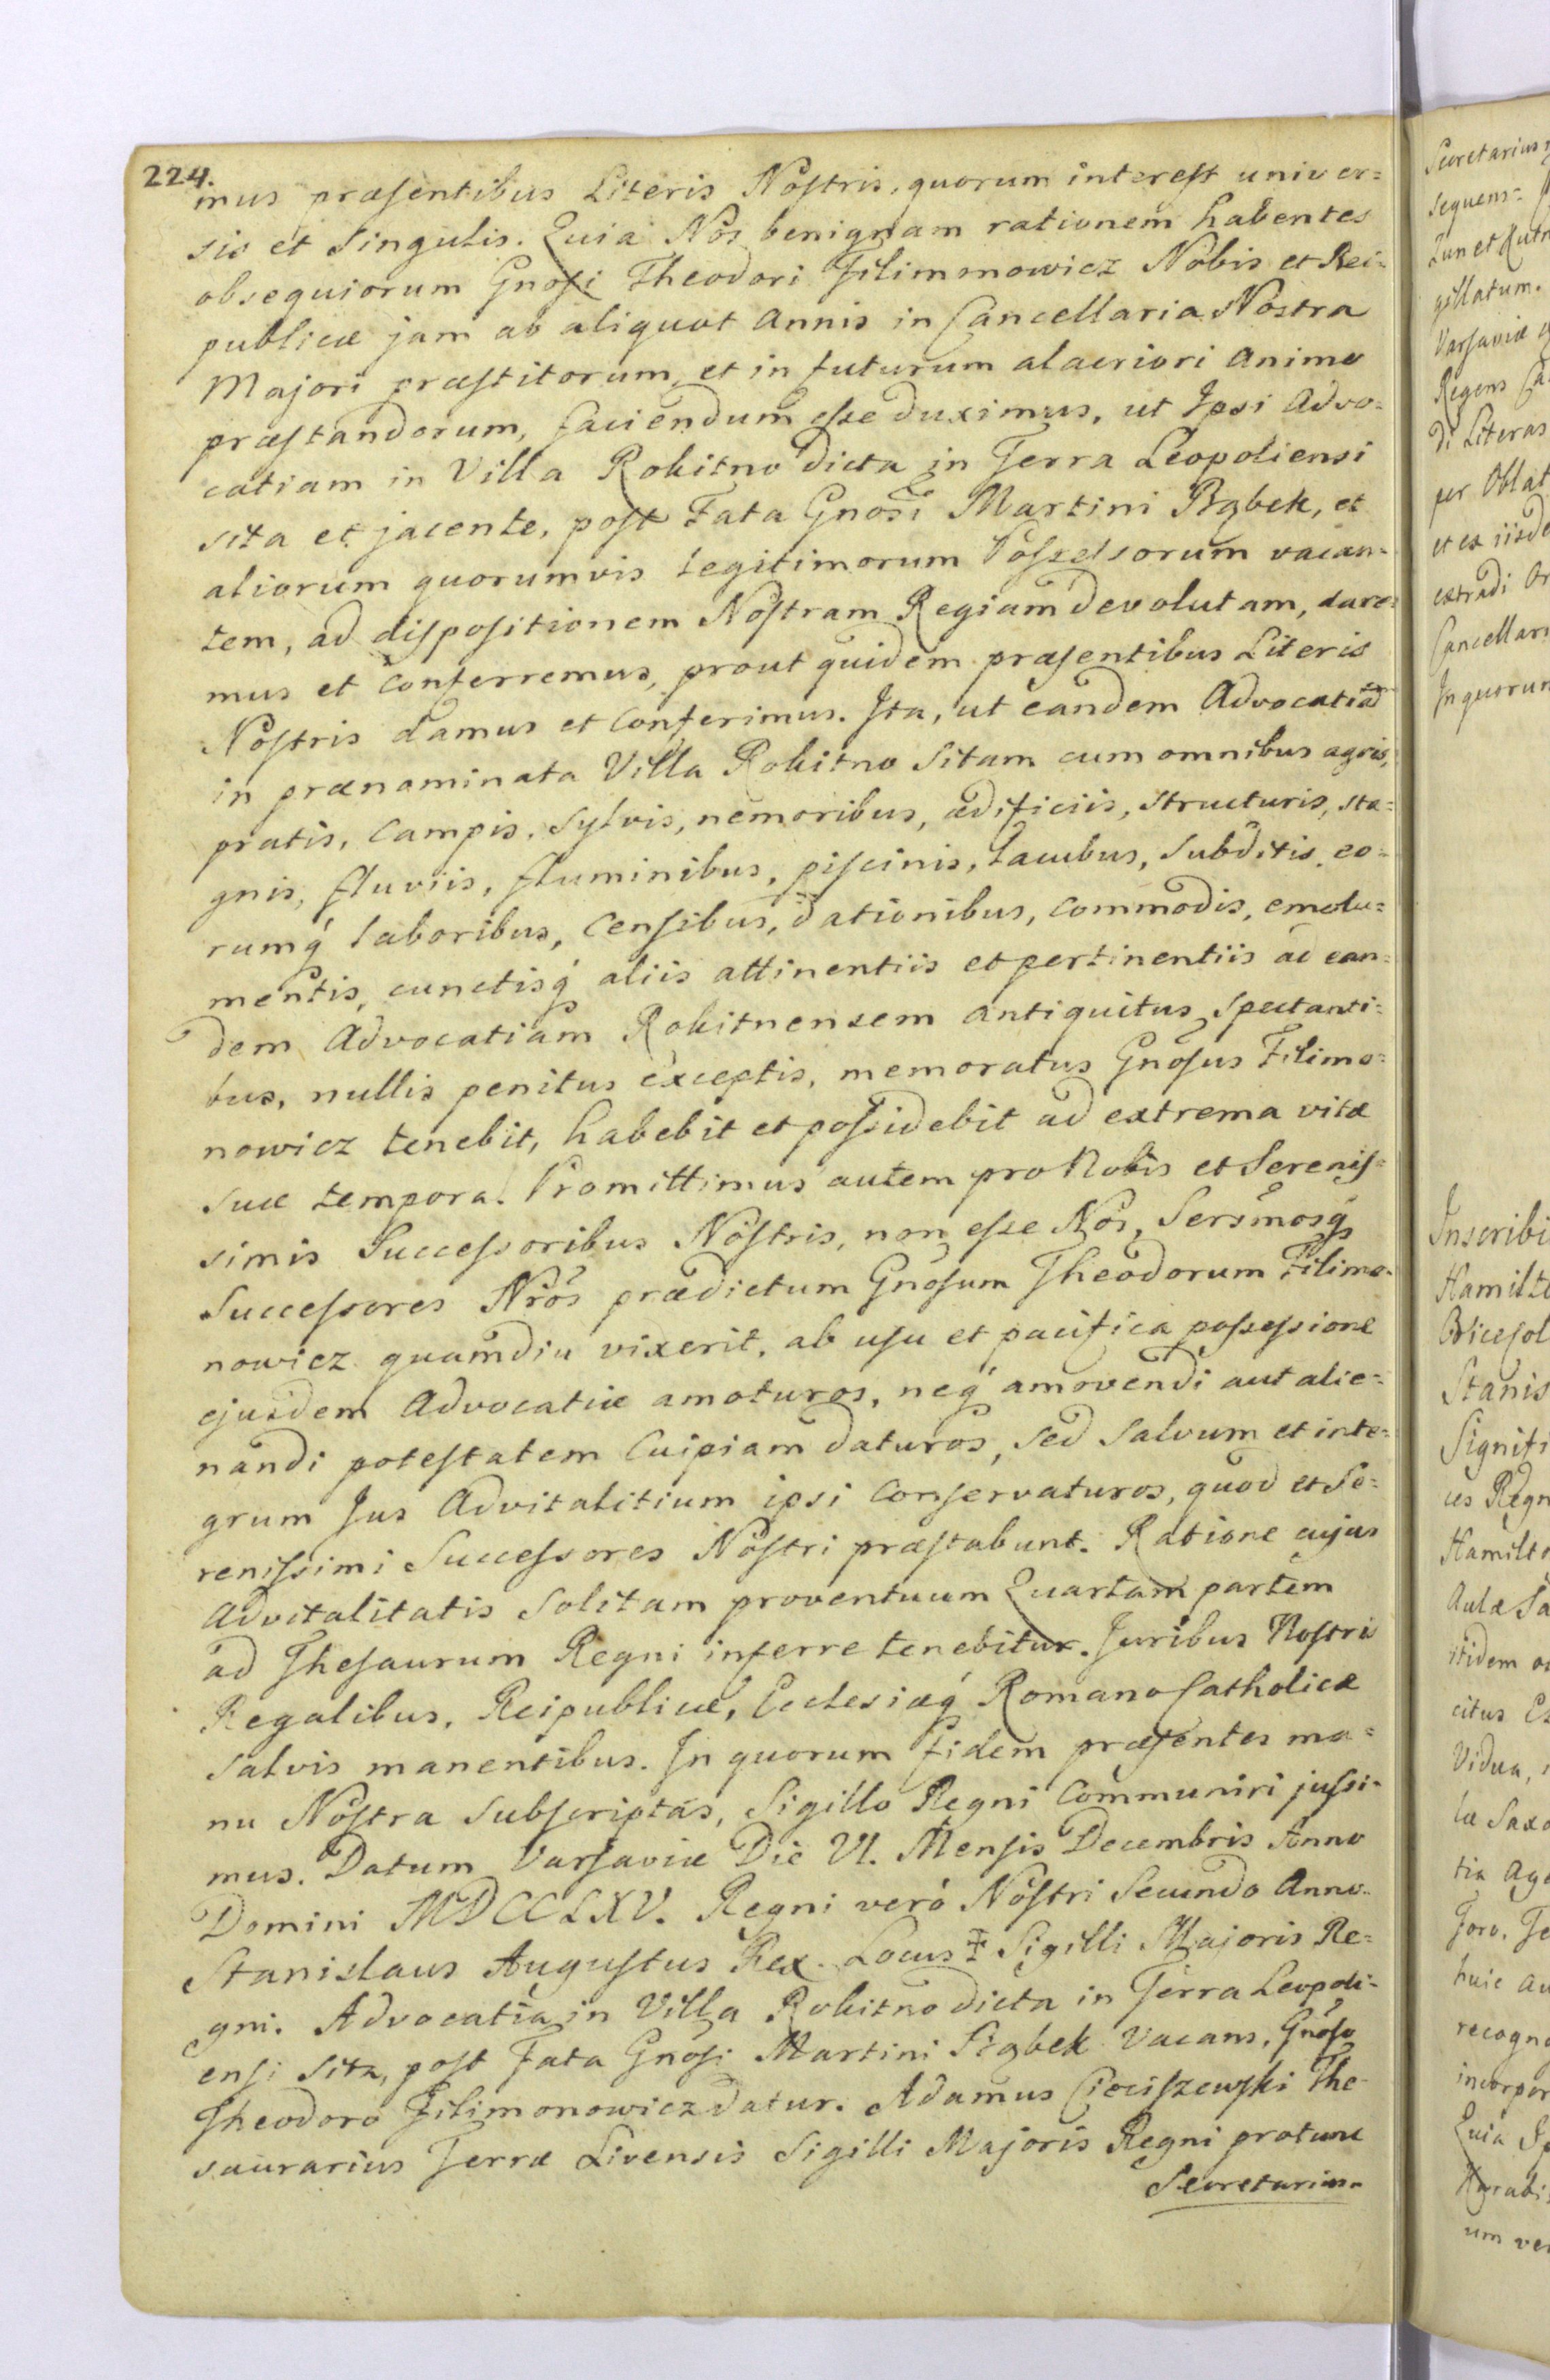 224.
mus præsentibus Literis Nostris, quorum interest univer=
sis et Singulis. Quia Nos benignam rationem habentes
obsequiorum Gnosi Theodori Filimmowicz Nobis et Rei=
publicæ jam ab aliquot annis in Cancellaria Nostra
Majori præstitorum, et in futurum alacriori animo
præstandorum, faciendum esse duximus, ut Ipsi Advo=
catiam in Villa Rokitno dicta in Terra Leopoliensi
sita et jacente, post Fata Gnosi Martini, et
aliorum quorumvis Legitimorum Possessorum vacan=
tem, ad dispositionem Nostram Regiam devolutam, dare=
mus et conferremus, prout quidem præsentibus Literis
Nostris damus et conferimus. Ita, ut eandem Advocatiã
in prænominata Villa Rokitno Sitam cum omnibus agris,
pratis, Campis, Sylvis, nemoribus, ædificiis, structuris, sta=
gnis, fluviis, fluminibus, piscinis, Lacubus, Subditis, eo=
rumq́ laboribus, Censibus, dationibus, commodis, emolu=
mentis, cunctisq́ aliis attinentiis et pertinentiis ad ean=
dem Advocatiam Rokitnensem antiquitus Spectanti=
bus, nullis penitus exceptis, memoratus Gnosus Filimo=
nowicz tenebit, habebit et possidebit ad extrema vitæ
suæ tempora. Promittimus autem pro Nobis et Serenis=
simis Successoribus Nostris, non esse Nos, Sersmosq́
Successores Nrõs prædictum Gnosum Theodorum Filimo=
nowicz quamdiu vixerit, ab usu et pacifica possessione
ejusdem Advocatiæ amoturos, neq́ amovendi aut alie=
nandi potestatem Cuipiam daturos, sed Salvum et inte=
grum Jus Advitalitium ipsi conservaturos, quod et Se=
renissimi Successores Nostri præstabunt. Ratione cujus
Advitalitatis Solitam proventuum Quartam partem
ad Thesaurum Regni inferre tenebitur. Juribus Nostris
Regalibus, Reipublicæ, Ecclesiæq́ Romano Catholicæ
salvis manentibus. In quorum fidem præsentes ma=
nu Nostra Subscriptas, Sigillo Regni Communiri jussi=
mus. Datum Varsaviæ Die VI. Mensis Decembris Anno
Domini MDCCLXV. Regni verò Nostri Secundo Anno.
Stanislaus Augustus Rex. Locus ‡ Sigilli Majoris Re=
gni. Advocatia in Villa Rokitno dicta in Terra Leopoli=
ensi Sita, post Fata Gnosi Martini Vacans, Gnoso
Theodoro Filimonowicz datur. Adamus Cieciszewski The=
saurarius Terræ Livensis Sigilli Majoris Regni protunc
Secretarius.
Secretarius
sequens=
gillatum.
Varsaviæ
Regens
di Literas
per Oblat
et ex iisde
extradi
Cancellar
In quorum
Inscribi
Hamilt
Stanis
Signifi
Regn
Hamilt
Aulæ Sa
itidem
citus
Vidua,
Saxo
Foro.
huic
recogno
incorpor
Quia
um